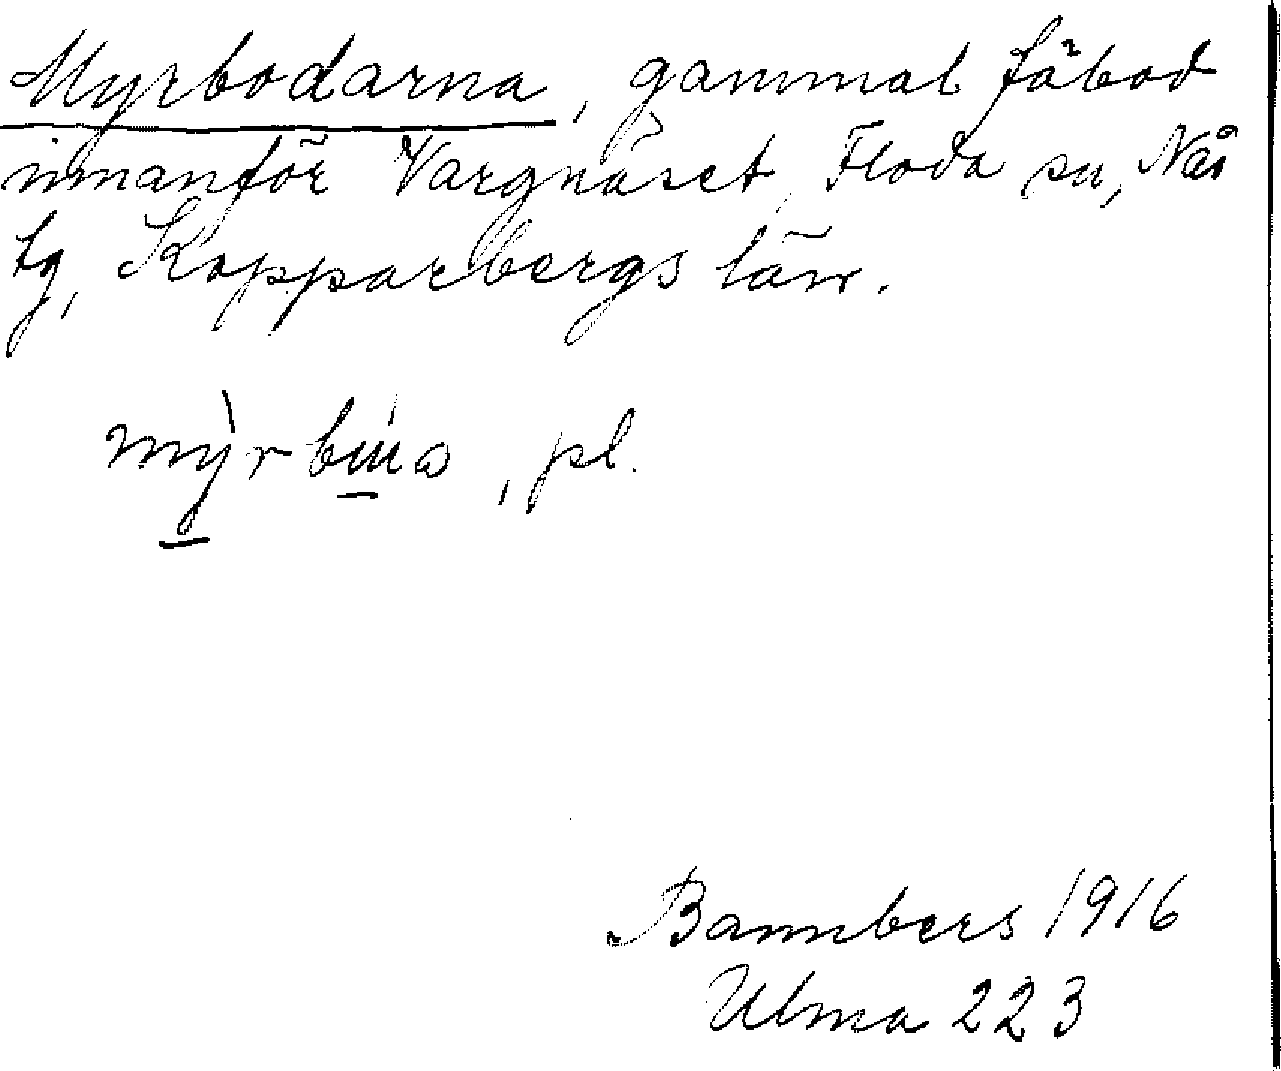 Myrbodarna, gammal fäbod
innanför Vargnäset, Floda sn, Nås
tg, Kopparbergs län.
pl.
Bannbers 1916
Ulma 223